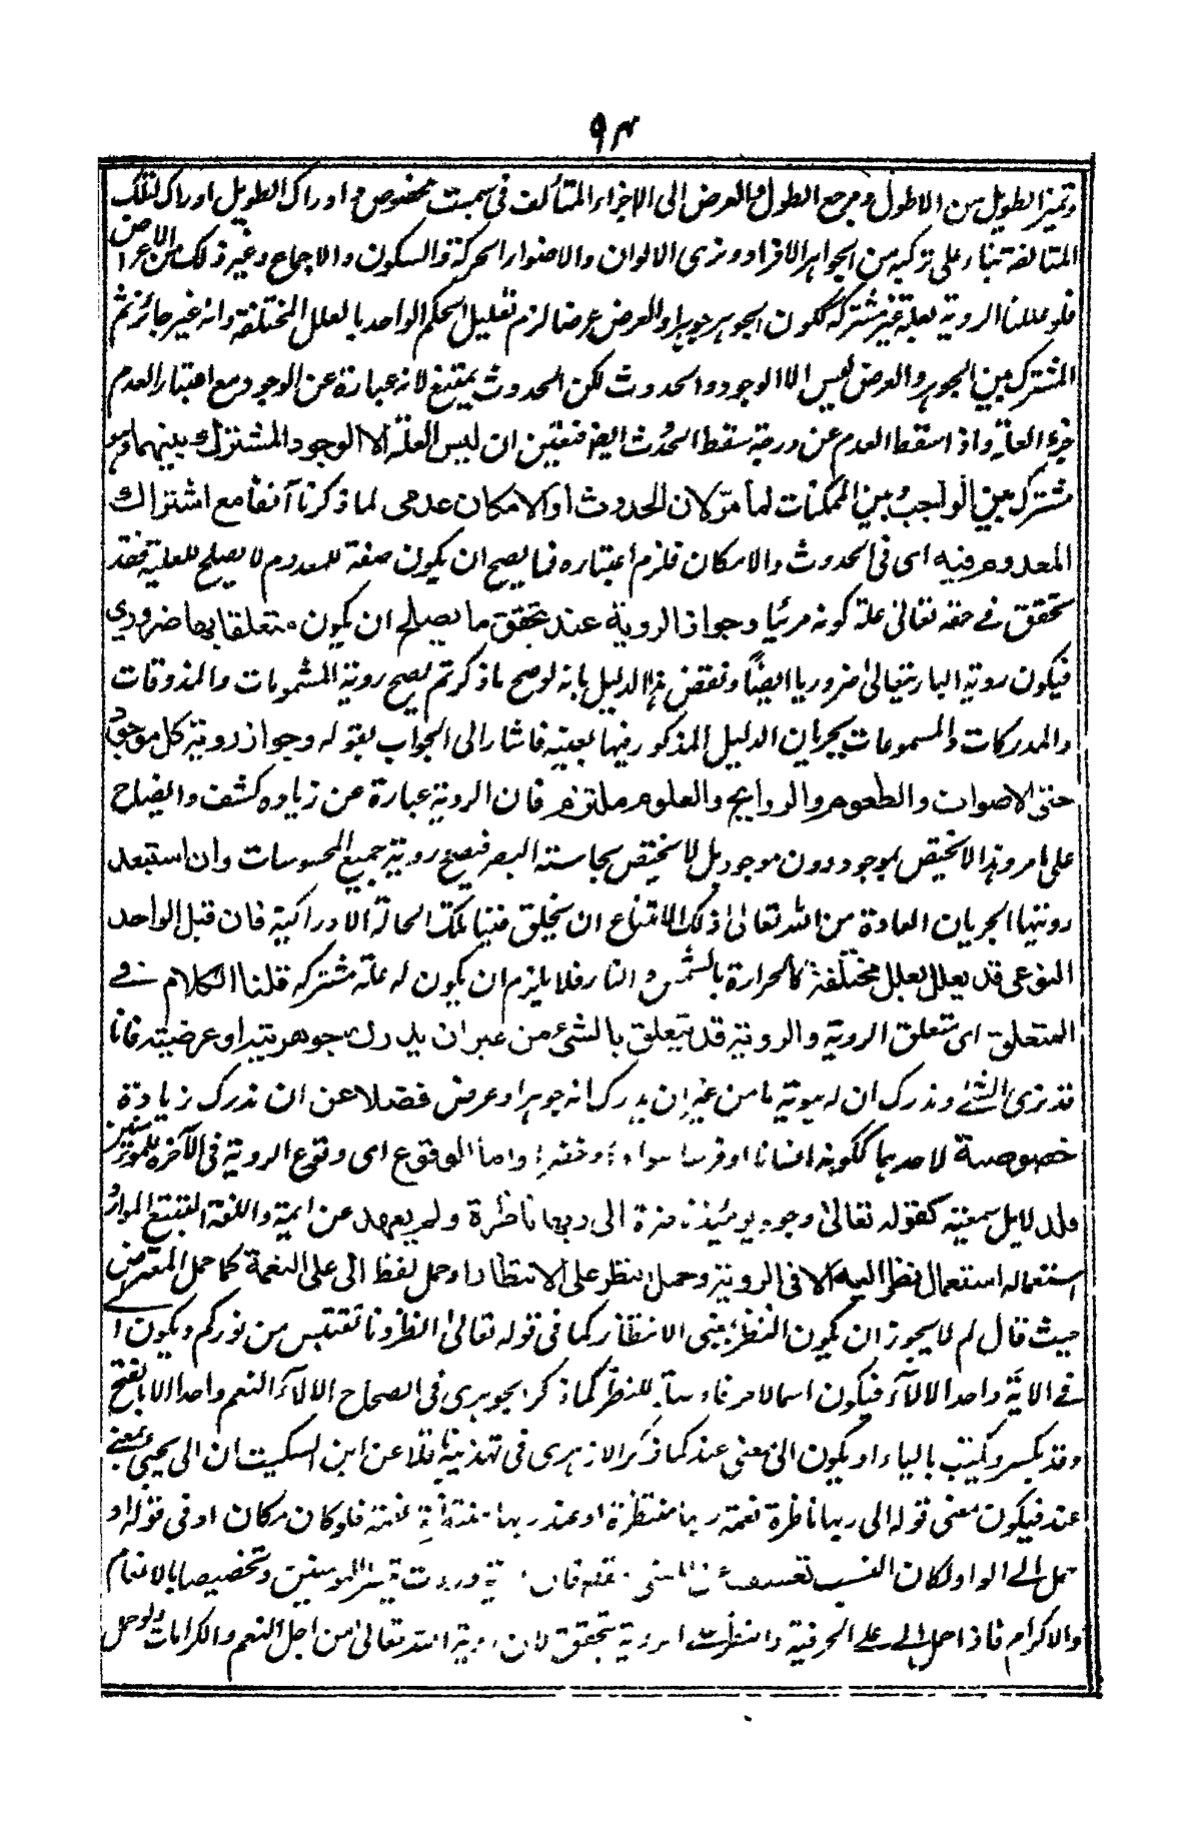 ٩٣
وتميز الطويل من الاطول ومرجع الطول والعرض الى الاجزاء المتألف في سمت مخصوص وادراك الطويل ادراك لتلك
المتالفة بناء على تركبه من الجواهر الافراد ونرى الالوان والاضواء والحركة والسكون والاجماع وغير ذلك من الاعراض
فلو عللنا الروية بعلة غير مشتركة ككون الجوهر جوهرا والعرض عرضا لزم تعليل الحكم الواحد بالعلل المختلفة وانه غير جائز ثم
المشترك بين الجوهر والعرض ليس الا الوجود والحدوث لكن الحدوث يمتنع لانه عبارة عن الوجود مع اعتبار العدم
جزء العلة واذا سقط العدم عن درجة سقط الحدث ايضا فتعين ان ليس العلة الا الوجود المشترك بينهما وهو
مشترك بين الواجب وبين الممكنات لما مر كلان الحدوث او كالامكان عدمى لما ذكرنا آنفا مع اشتراك
المعدوم فيه اى فى الحدوث والامكان فلزم اعتباره فما يصح ان يكون صفة للمعدوم لا يصلح للعلية فقد
تحقق في حقه تعالى علة كونه مرئيا وجواز الروية عند تحقق ما يصلح ان يكون متعلقا بها ضروري
فيكون روية الباريتعالى ضروريا ايضا ونقض هذا الدليل بانه لو صح ما ذكرتم لصح روية المشمومات والمذوقات
والمدركات والمسموعات بجريان الدليل المذكور فيها بعينه فاشار الى الجواب بقوله وجواز روية كل موجود
حتى الاصوات والطعوم والروايح والعلوم ملتزم فان الروية عبارة عن زياده كشف وايضاح
على امر وهذا لا يختص بموجود دون موجود بل لا يختص بحاسة البصر فيصح روية جميع المحسوسات وان استبعد
رويتها الجريان العادة من الله تعالى اذ لك لا امتناع ان يخلق فينا تلك الحالة الادراكية فان قيل الواحد
النوعى قد يعلل بعلل مختلفة كالحرارة بالشمس والنار فلا يلزم ان يكون له علة مشتركه قلنا الكلام في
المتعلق اى متعلق الروية والروية قد يتعلق بالشئ من غير ان يدرك جوهريته او عرضيته فانا
قد نرى الشئ وندرك ان له هوية ما من غير ان يدرك انه جوهر او عرض فضلا عن ان ندرك زيادة
خصوصية لاحدهما ككونه انسانا او فرسا سوادا او خضرا واما الوقوع اى وقوع الروية فى الآخرة للمؤمنين
فلدلايل سمعية كقوله تعالى وجوه يومئذ ناضرة الى ربها ناظرة ولم يعهد عن ايمة واللغة المتتبع الموارد
استعماله استعمال نظر اليه الا فى الروية وحمل النظر على الانتظار او حمل لفظ الى على النعمة كما حمل المعترض
حيث قال لم لا يجوز ان يكون النظر بمعنى الانتظار كما فى قوله تعالى انظرونا نقتبس من نوركم ويكون الى
في الاية واحد الالآء فيكون اسما لا حرفا وصلة للنظر كما ذكر الجوهرى فى الصحاح الالآء النعم واحد الالا بالفتح
وقد يكسر ويكتب بالياء او يكون الى بمعنى عند كما ذكر الازهرى فى تهذيبه نقلا عن ابن السكيت ان الى يجئ بمعنى
عند فيكون معنى قوله الى ربها ناظرة نعمة ربها منتظرة او عند ربها منتظرة نعمته فلو كان مكان او فى قوله او
حمل الى الواو لكان انسب تعسف وردت تبشيرا للمومنين وتخصيصا بالانعام
والاكرام فاذا حمل الى على الحرفية والنظر الروية يتحقق لان روية الله تعالى من اجل النعم والكرامات ولو حمل